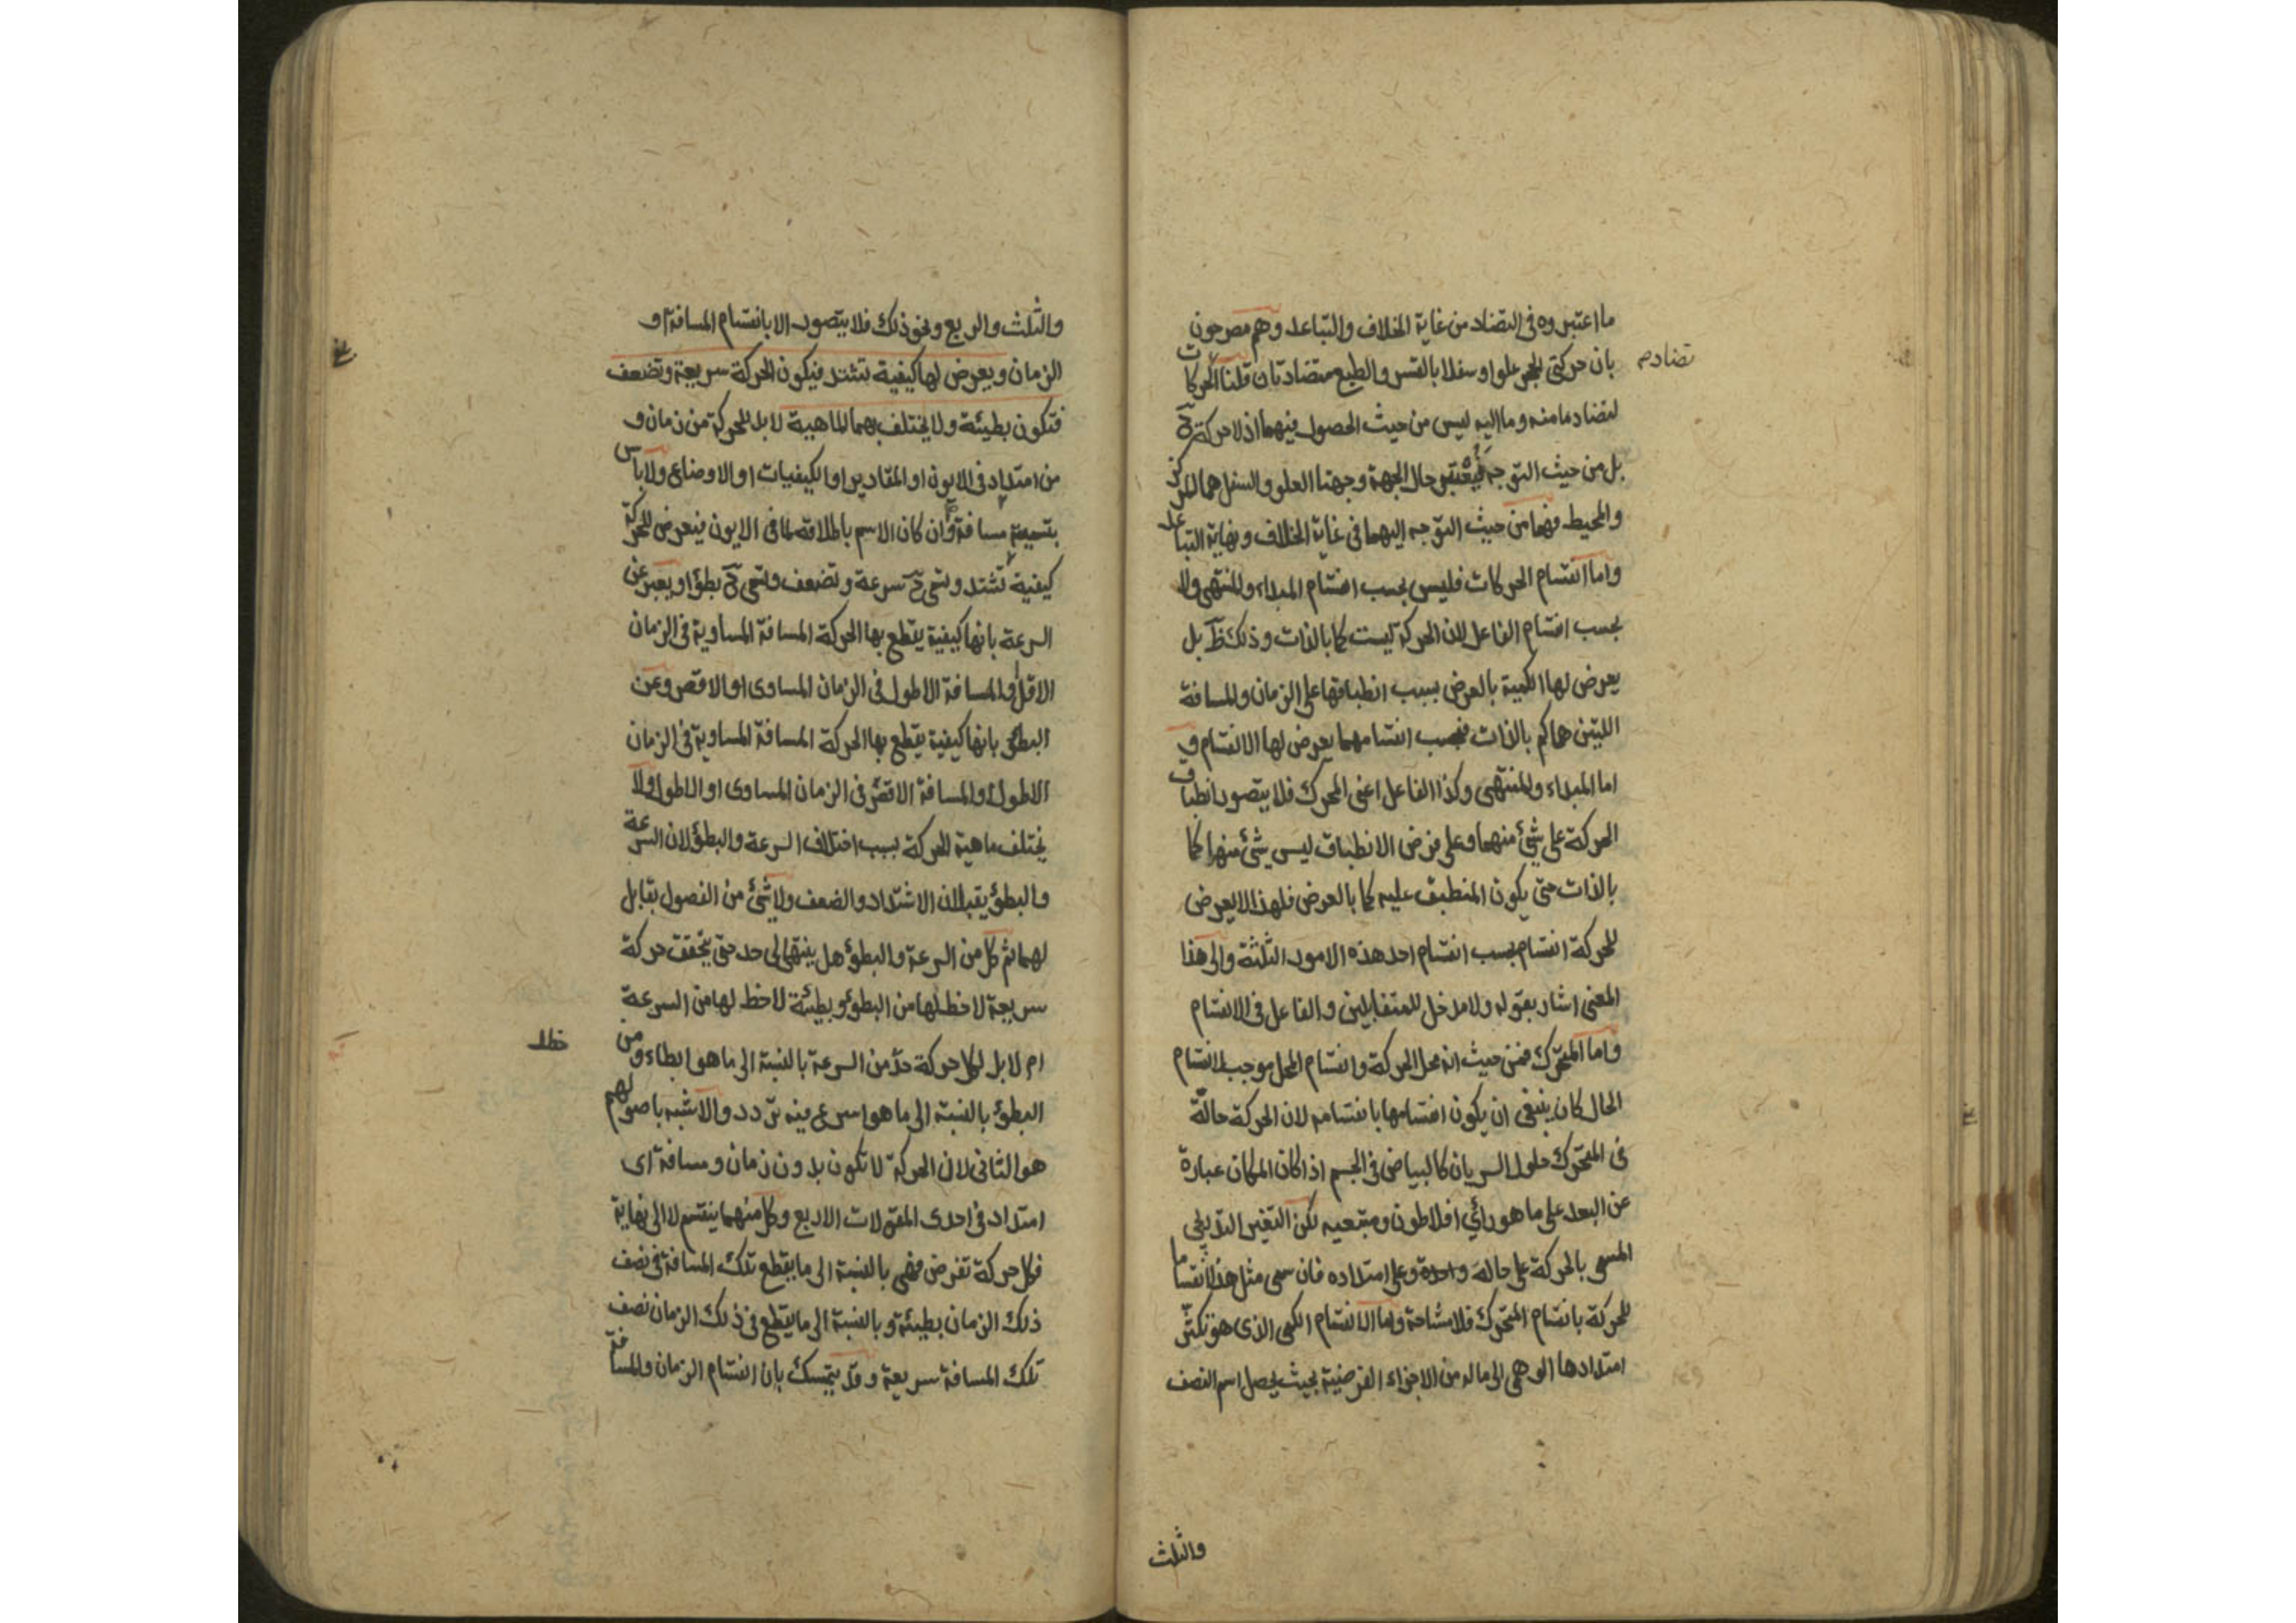 ما اعتبروه فى التضاد من غاية الخلاف والتباعد وهم مصرحون
بان حركتى الحجر علوا وسفلا بالقسر والطبع متضادتان قلنا الحركات
تضادم
لتضاد ما منه وما اليه ليس من حيث الحصول فيهما اذ لا حركة ح
بل من حيث التوجه فيعتبر حال الجهة وجهتا العلو والسفل هما المركز
والمحيط فهما من حيث التوجه اليهما فى غاية الخلاف ونهاية التباعد
واما انقسام الحركات فليس بحسب انقسام المبداء والمنتهى ولا
بحسب انقسام الفاعل لان الحركة ليست كما بالذات وذلك ظ بل
يعرض لها الكمية بالعرض بسبب انطباقها على الزمان والمسافة
الليتين هما كم بالذات فبحسب انقسامهما يعرض لها الانقسام و
اما المبداء والمنتهى وكذا الفاعل اعنى المحرك فلا يتصور انطباق
الحركة على شئ منهما وعلى فرض الانطباق ليس شئ منها كما
بالذات حتى يكون المنطبق عليه كما بالعرض فلهذا لا يعرض
للحركة انقسام بحسب انقسام احد هذه الامور الثلثة والى هذا
المعنى اشار بقوله ولا مدخل للمتقابلين والفاعل فى الانقسام
واما المتحرك فمن حيث انه محل الحركة وانقسام المحل موجب لانقسام
الحال كان ينبغى ان يكون انقسامها بانقسامه لان الحركة حالة
فى المتحرك حلول السريان كالبياض فى الجسم اذا كان المكان عبارة
عن البعد على ما هو رأي افلاطون ومتبعيه لكن التغير التدريجى
المسمى بالحركة على حاله واحدة وعلى امتداده فان سمى مثل هذا انقساما
للحركة بانقسام المتحرك فلا مشاحة واما الانقسام الكمى الذى هو تكثر
امتدادها الوهمى الى ماله من الاجزاء الفرضية بحيث يحصل اسم النصف
والثلث
والثلث والربع ونحو ذلك فلا يتصور الا بانقسام المسافة او
الزمان ويعرض لها كيفية تشتد فيكون الحركة سريعة وتضعف
فتكون بطيئة ولا يختلف بهما الماهية لا بد للحركة من زمان و
من امتداد فى الايون او المقادير او الكيفيات او الاوضاع ولا باس
بتسمية مسافة وان كان الاسم بالملاقه لما فى الايون فيعرض للحركة
كيفية تشتد وتسمى ح سرعة وتضعف وتسمى ح بطؤا ويعبر عن
السرعة بانها كيفية يقطع بها الحركة المسافة المساوية فى الزمان
الاقل او المسافة الاطول فى الزمان المساوى او الاقصر وعن
البطؤ بانها كيفية يقطع بها الحركة المسافة المساوية فى الزمان
الاطول او المسافة الاقصر فى الزمان المساوى او الاطول ولا
يختلف ماهية الحركة بسبب اختلاف السرعة والبطؤ لان السرعة
والبطؤ يقبلان الاشتداد والضعف ولا شئ من الفصول بقابل
لهما ثم كل من السرعة والبطؤ هل ينتهى الى حد حتى يتحقق حركة
سريعة لا حظ لها من البطؤ وبطيئة لا حظ لها من السرعة
ام لا بل لكل حركة حد من السرعة بالنسبة الى ما هو ابطاء ومن
البطؤ بالنسبة الى ما هو اسرع فيه تردد والاشبه باصولهم
هو الثانى لان الحركة لا تكون بدون زمان ومسافة اى
امتداد فى احدى المقولات الاربع وكل منهما ينقسم لا الى نهاية
فكل حركة تفرض فهى بالنسبة الى ما يقطع تلك المسافة فى نصف
ذلك الزمان بطيئة وبالنسبة الى ما يقطع فى ذلك الزمان نصف
تلك المسافة سريعة وقد يتمسك بان انقسام الزمان والمسافة